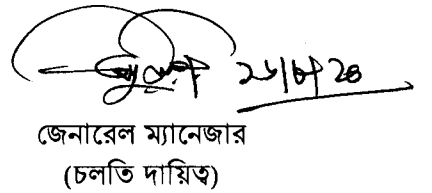 ২৬/৮/২৪
জেনারেল ম্যানেজার
(চলতি দায়িত্ব)